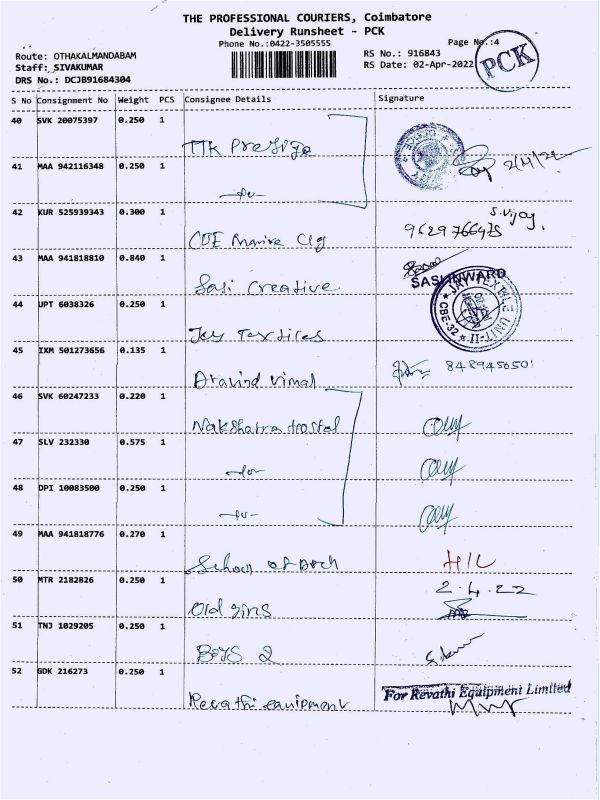 THE PROFESSIONAL COURIERS, Coimbatore
Delivery Runsheet - PCK
Phone No.:0422-3505555
Page No.:4
PCK
Route: OTHAKALMANDABAM
Staff: SIVAKUMAR
DRS No.: DCJB91684304
RS No.: 916843
RS Date: 02-Apr-2022
S No Consignment No Weight PCS Consignee Details Signature
40 SVK 20075397 0.250 1
TTK Prestige
2/4/22
41 MAA 942116348 0.250 1
-do-
42 KUR 525939343 0.300 1
S.Vijay.
9629766475
CBE Marive Clg
43 MAA 941818810 0.840 1
Sasi Creative
SASI INWARD
44 UPT 6038326 0.250 1
Jay Textiles
JAY TEXTILE UNIT-II
CBE-32
45 IXM 501273656 0.135 1
Aravind Vimal
8489450501
46 SVK 60247233 0.220 1
Nakshatra Hostel
47 SLV 232330 0.575 1
-do-
48 DPI 10083500 0.250 1
-do-
49 MAA 941818776 0.270 1
School of
H/L
50 MTR 2182826 0.250 1
2.4.22
Old girls
51 TNJ 1029205 0.250 1
Boys 2
52 GDK 216273 0.250 1
Revathi equipment
For Revathi Equipment Limited